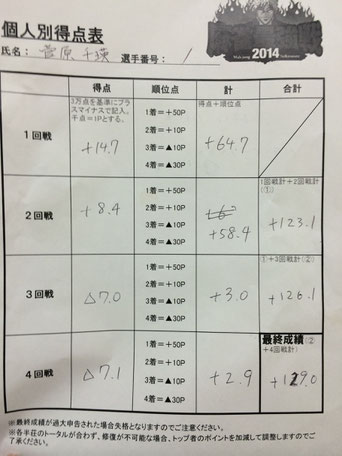 個人別得点表
2014
氏名： 菅原 千瑛 選手番号： 1
得点 順位点 計 合計
1回戦
3万点を基準にプラ
スマイナスで記入。
千点＝1Pとする。
+14.7
1着＝＋50P
2着＝＋10P
3着＝▲10P
4着＝▲30P
得点＋順位点
+64.7
2回戦
+8.4
1着＝＋50P
2着＝＋10P
3着＝▲10P
4着＝▲30P
+58.4
1回戦計＋2回戦計
(①)
+123.1
3回戦
△7.0
1着＝＋50P
2着＝＋10P
3着＝▲10P
4着＝▲30P
+3.0
①＋3回戦計(②)
+126.1
4回戦
△7.1
1着＝＋50P
2着＝＋10P
3着＝▲10P
4着＝▲30P
+2.9
最終成績(②
＋4回戦計)
+129.0
※最終成績が過大申告された場合失格となりますのでご注意ください。
※各半荘のトータルが合わず、修復が不可能な場合、トップ者のポイントを加減して調整しますのでご
了承ください。